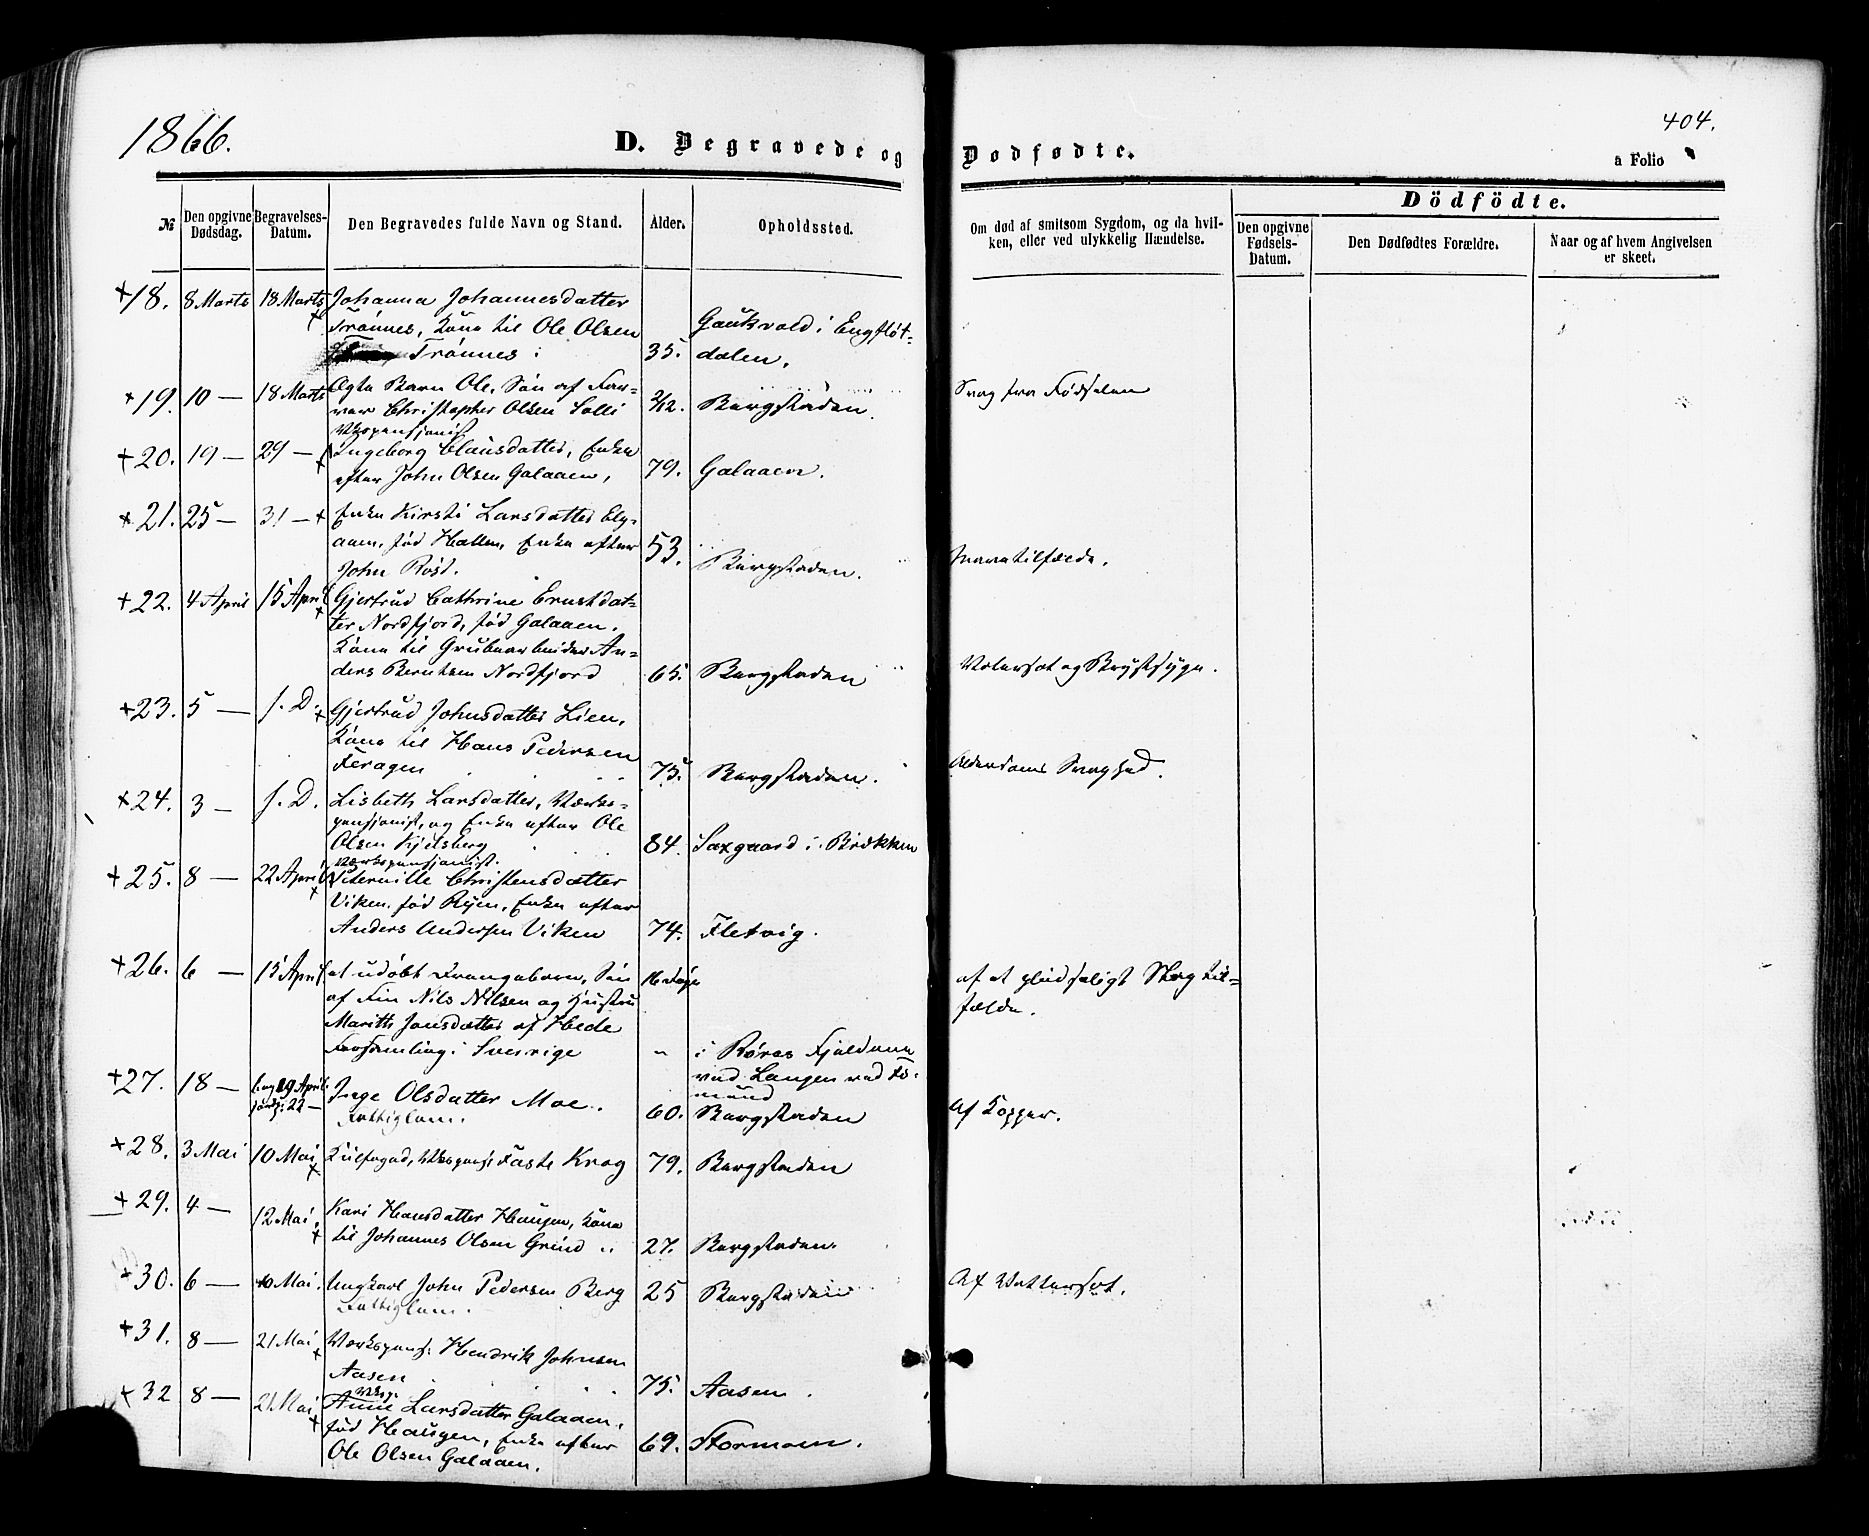 1866.
404.
D. Begravede og Dodfodte.
a Folio
№
Den opgivne Dødsdag.
Begravelses-Datum.
Den Begravedes fulde Navn og Stand.
Alder.
Opholdssted.
Om død af smitsom Sygdom, og da hvilken, eller ved ulykkelig Hændelse.
Dödfödte.
Den opgivne Fødsels-Datum.
Den Dødfødtes Forældre.
Naar og af hvem Angivelsen er skeet.
+18. 8 Marts 18 Marts Johanna Johannesdatter
Trönnes, Kone til Ole Olsen Gaukvold i Engflöt-
Trönnes 35. dalen.
+19. 10 — 18 Marts Ægte Barn Ole, Søn af Far-
ver Christopher Olsen Solli 2/12. Bergstaden. Svag fra Fødselen
+20. 19 — 29 — Ingeborg Clausdatter, Enke
efter John Olsen Galaaen, 79. Galaaen.
+21. 25 — 31 — + Enke Kirsti Larsdatter Elg-
aaen, fød Hallen, Enke efter 53.
John Röst. Bergstaden.
+22. 4 April 15 April Gjertrud Cathrine Erntsdat-
ter Nordfjord, fød Galaaen.
Kone til Grubearbeider An-
ders Berntsen Nordfjord 65. Bergstaden Vatersot og Brystsyge.
+23. 5 — s. D. Gjertrud Johnsdatter Lien,
Kone til Hans Pedersen
Feragen 75. Bergstaden. Alderdoms Svaghed.
+24. 3 — s. D. Lisbeth Larsdatter, Værks-
pensjonist, og Enke efter Ole
Olsen Kjelsberg 84. Saxgaard i Brekken
+25. 8 — 22 April Værkspensjonist.
Christensdatter
Viken, fød Ryen, Enke efter
Anders Andersen Viken 74. Fletvig.
+26. 6 — 15 April et udöbt Drengebarn, Søn 16 Dage af et pludseligt
af Fin Nils Nilsen og Hustru
Marith Jonsdatter af Hede
Forsamling i Sverrige " i Röros Fjeldene
ved Langen ved Fæ-
mund
+27. 18 — 19 April 22 — Inge Olsdatter Moe.
Fattiglem. 60. Bergstaden Af Kopper.
+28. 3 Mai 10 Mai Faste Krog 79. Bergstaden
+29. 4 — 12 Mai. Kari Hansdatter Haugen, Kone
til Johannes Olsen Grind 27. Bergstaden.
+30. 6 — 10 Mai. Ungkarl John Pedersen Berg 25 Bergstaden Af Vattersot.
Fattiglem.
+31. 8 — 21 Mai Værkspens: Hendrik Johnsen
Aasen 75. Aasen.
+32 8 — 21 Mai Anne Larsdatter Galaaen,
fød Haugen, Enke efter 69. Stormoen.
Ole Olsen Galaaen.